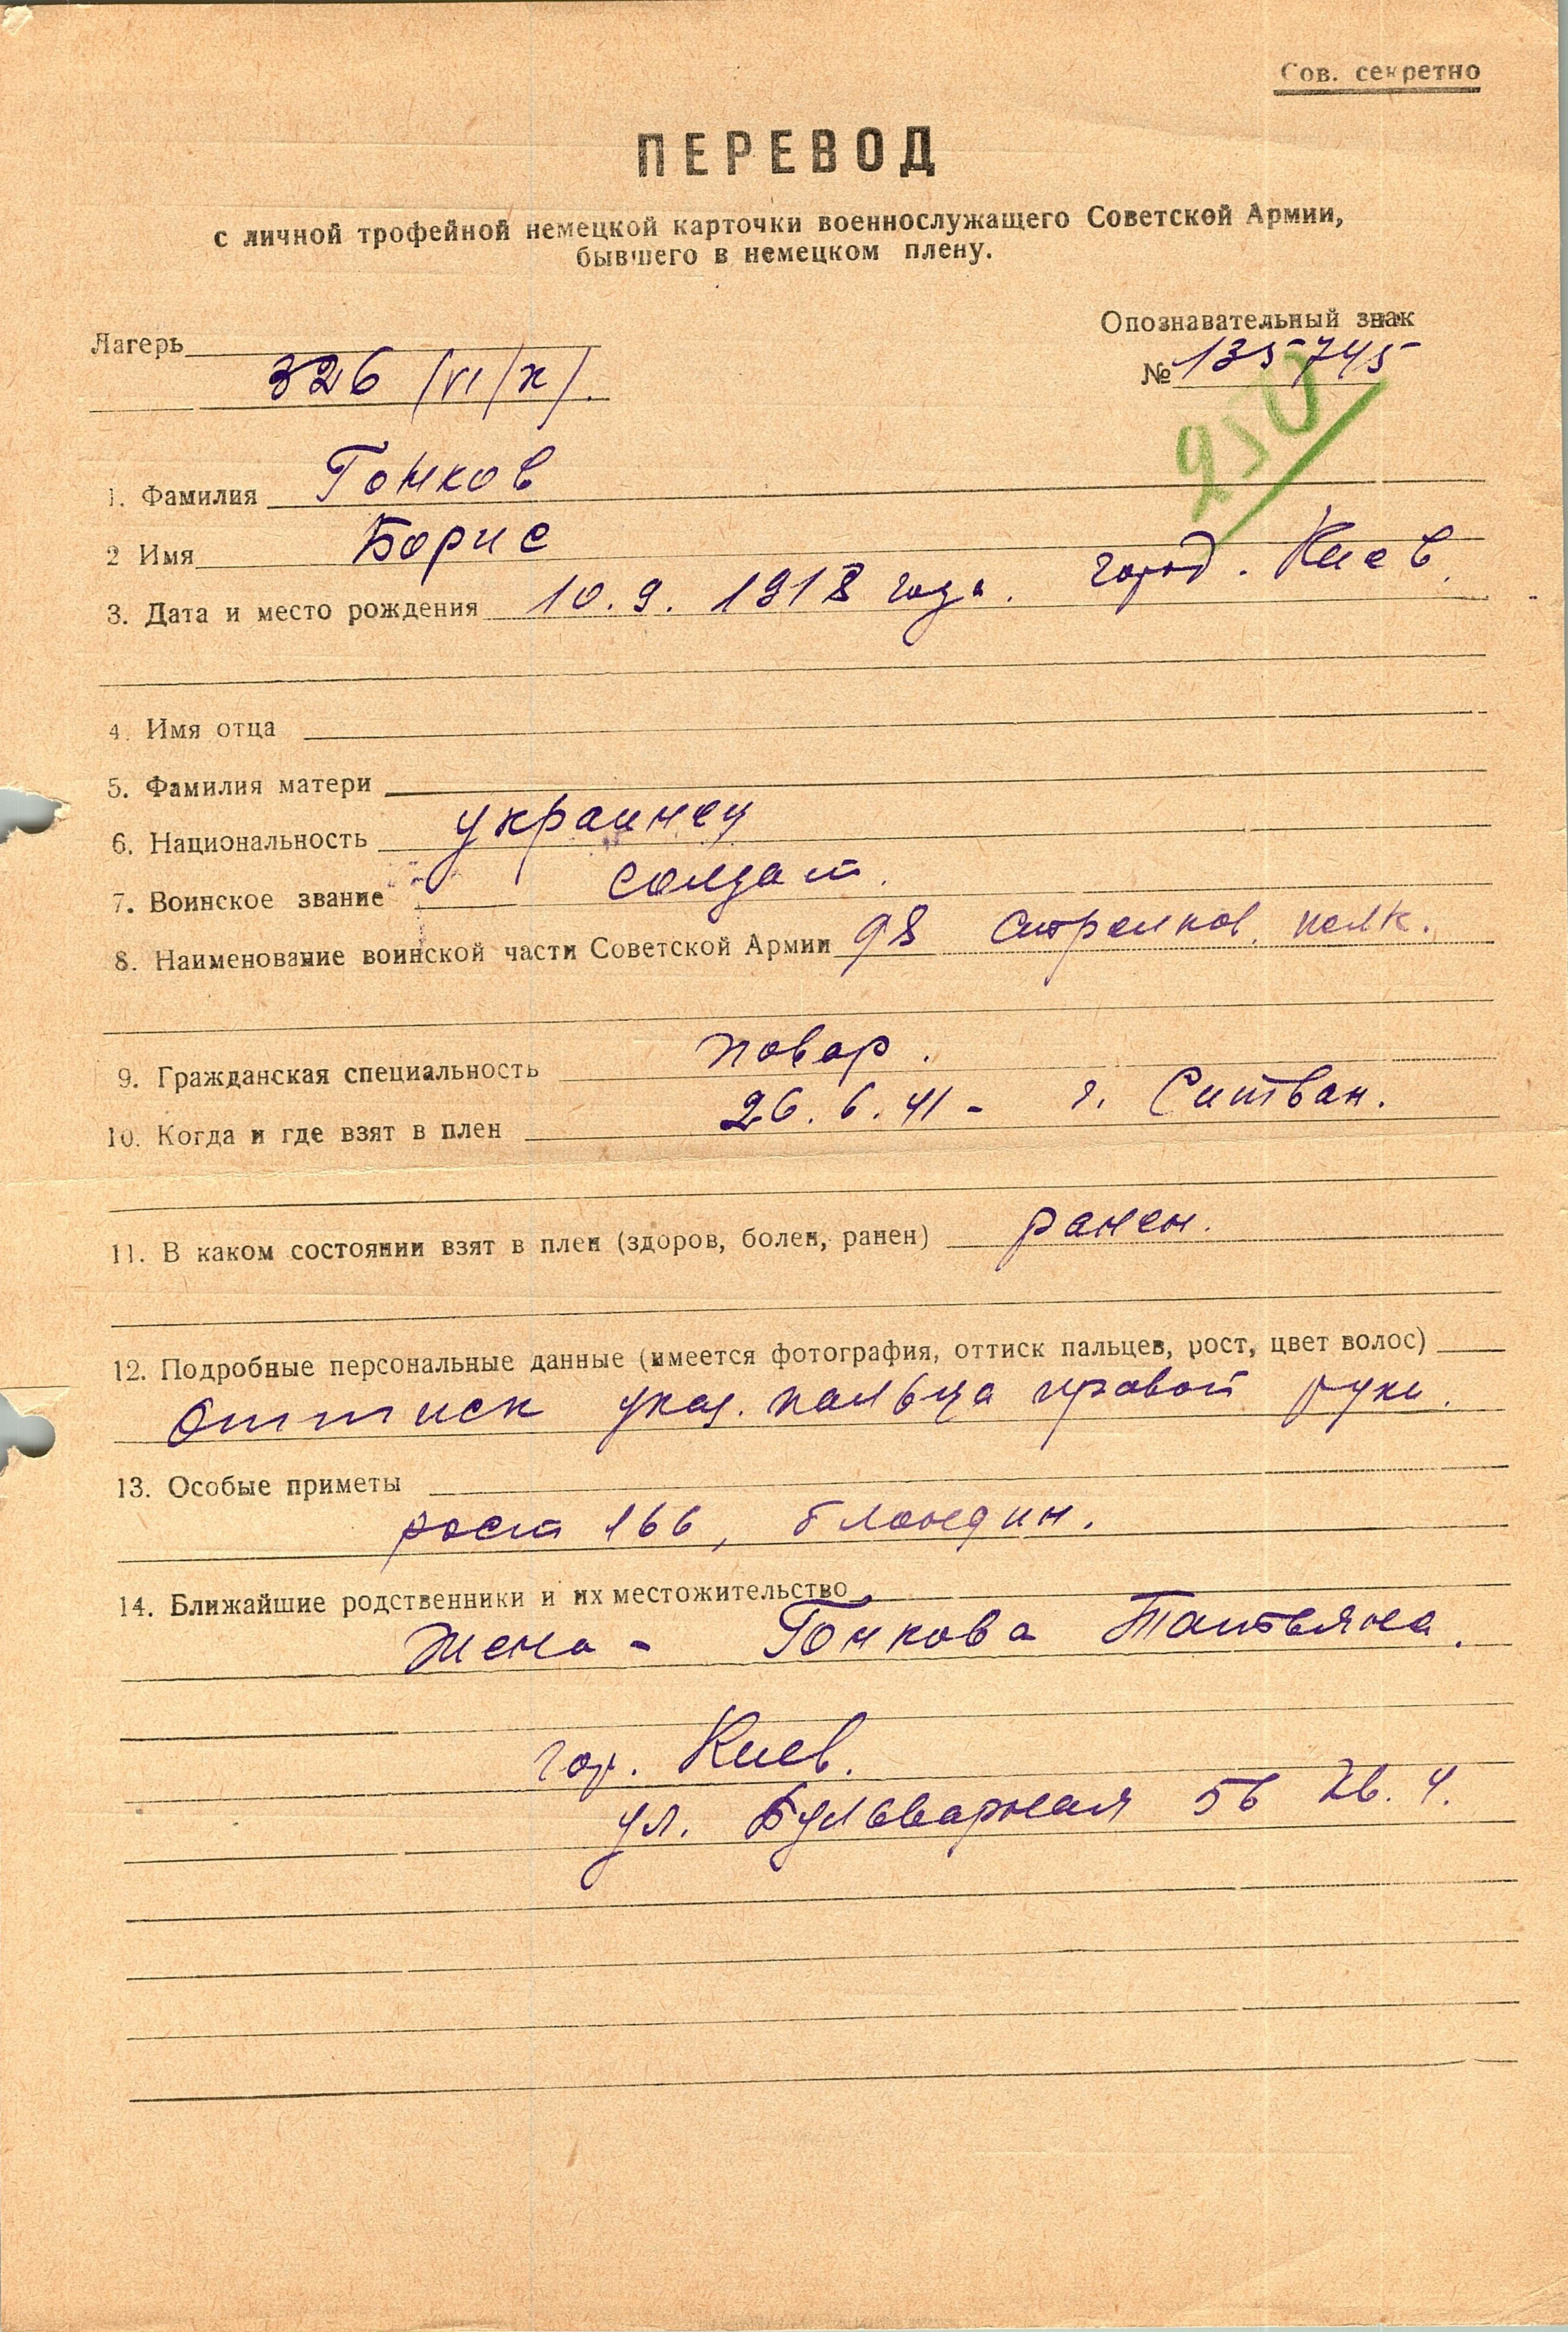 Сов. секретно
ПЕРЕВОД
с личной трофейной немецкой карточки военнослужащего Советской Армии,
бывшего в немецком плену.
Лагерь
326 /VI/к/.
Опознавательный знак
№ 135745
250
1. Фамилия Гонков
2 Имя Борис
3. Дата и место рождения 10.9.1918 года. город. Киев.
4. Имя отца
5. Фамилия матери
6. Национальность украинец
7. Воинское звание солдат.
8. Наименование воинской части Советской Армии 98 стрелков. полк.
9. Гражданская специальность повар.
10. Когда и где взят в плен 26.6.41 - г. Ситван.
11. В каком состоянии взят в плен (здоров, болен, ранен) ранен.
12. Подробные персональные данные (имеется фотография, оттиск пальцев, рост, цвет волос)
Оттиск указ. пальца правой руки.
13. Особые приметы
рост 166, блондин.
14. Ближайшие родственники и их местожительство
Жена - Гонкова Татьяна.
гор. Киев.
ул. Бульварная 56 кв. 4.